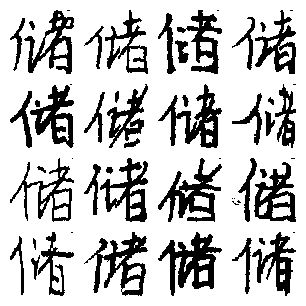 储储储储
储储储储
储储储储
储储储储